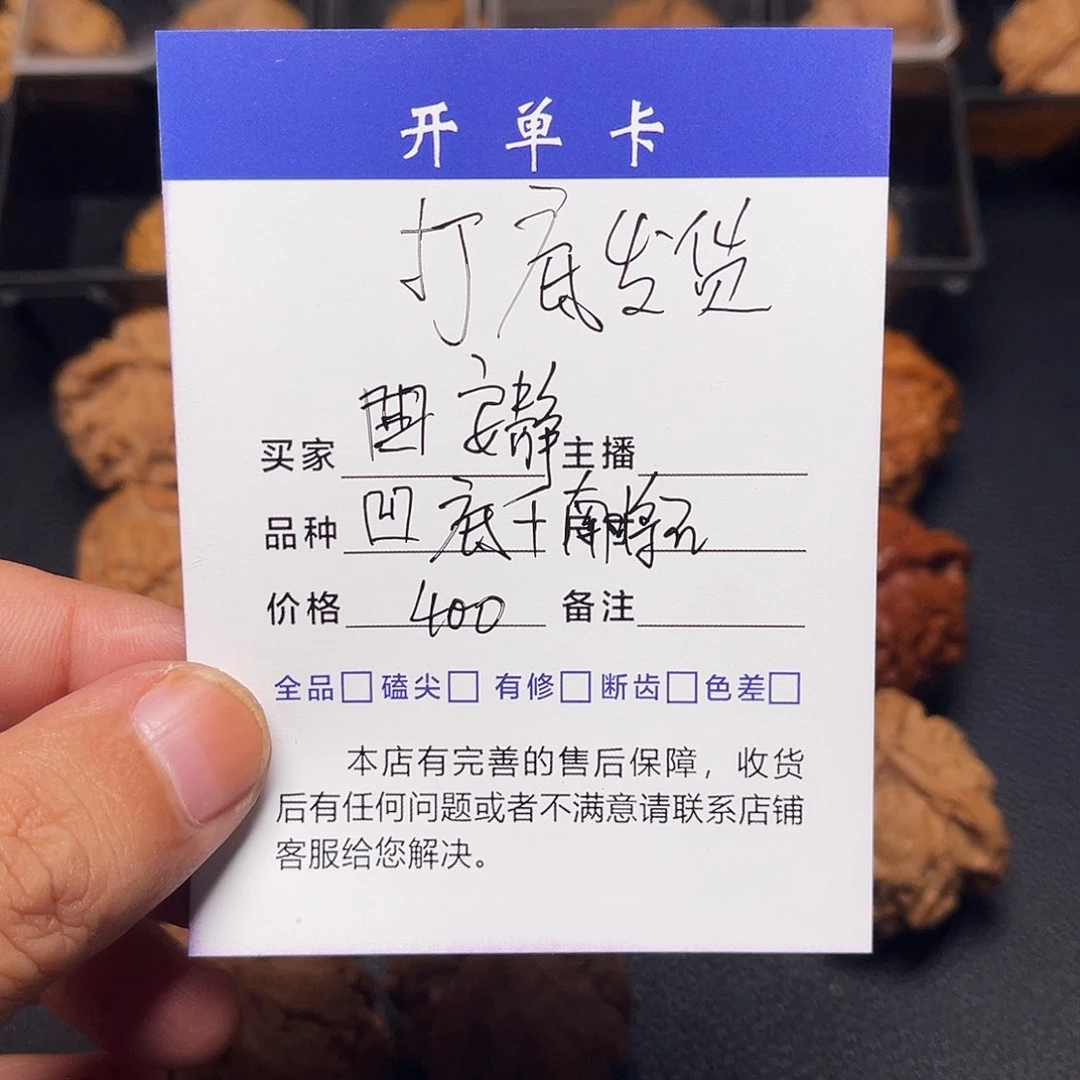 开单卡
打底发货
买家 安静 主播
品种 凹底十南将石
价格 400 备注
全品□ 磕尖□ 有修□ 断齿□ 色差□
本店有完善的售后保障，收货
后有任何问题或者不满意请联系店铺
客服给您解决。